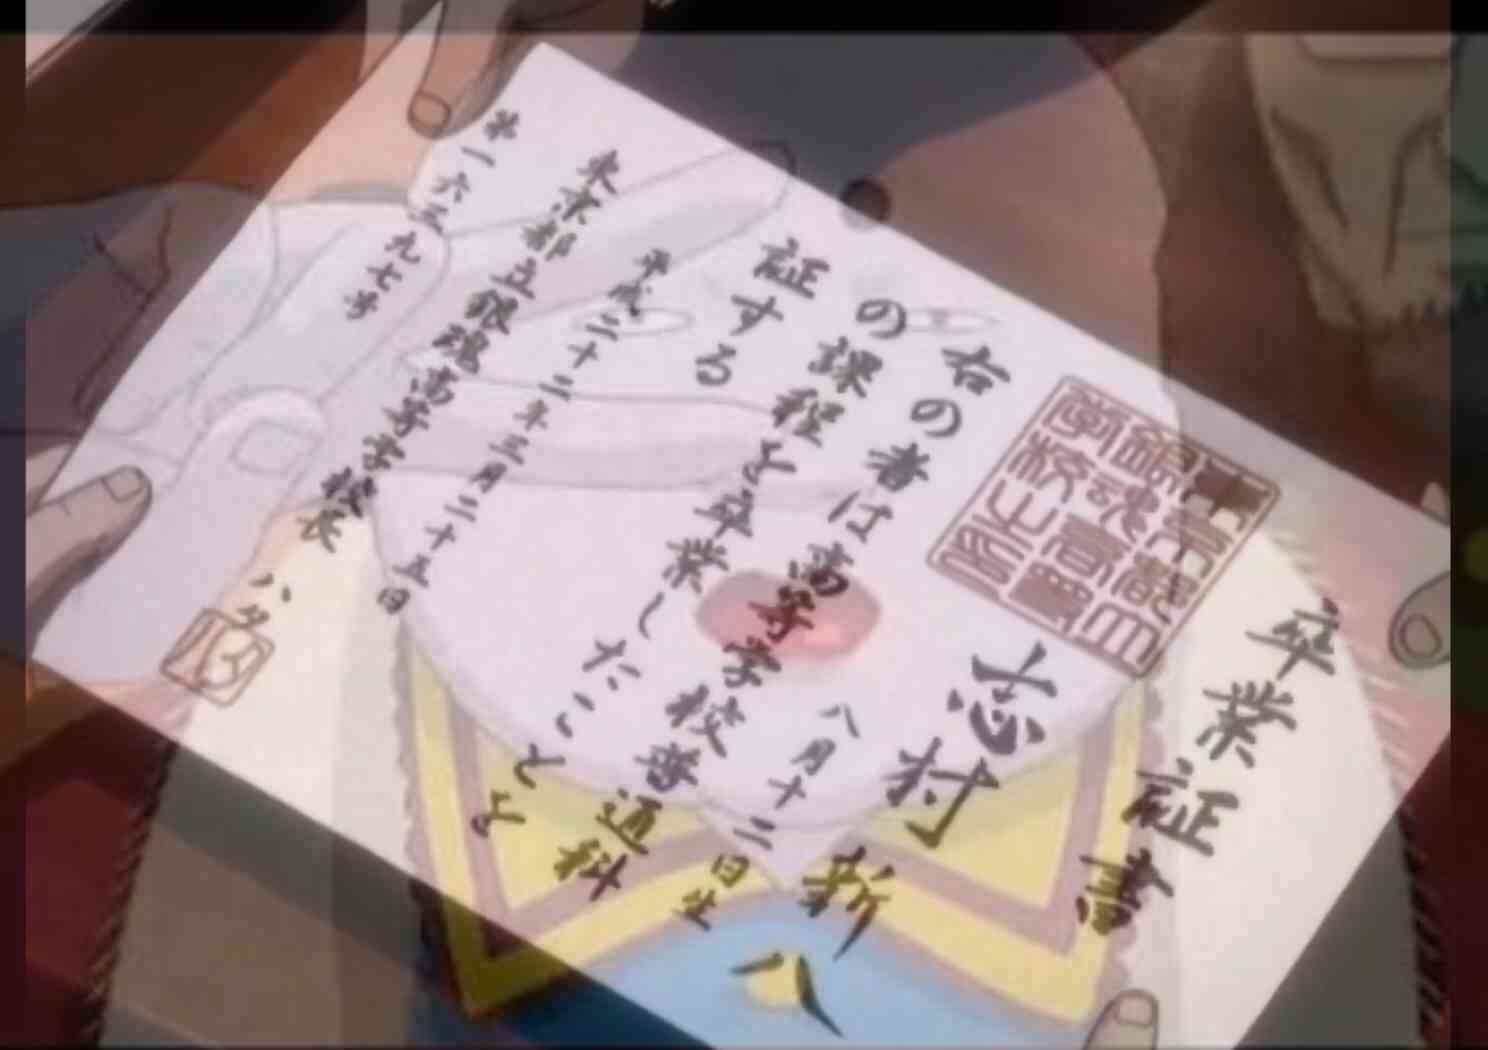 卒業証書
志村新八
八月十二日生
右の者は高等学校普通科
の課程を卒業したことを
証する
平成二十二年三月二十五日
東京都立銀魂高等学校長 ハタ
第一六三九七号
ハタ